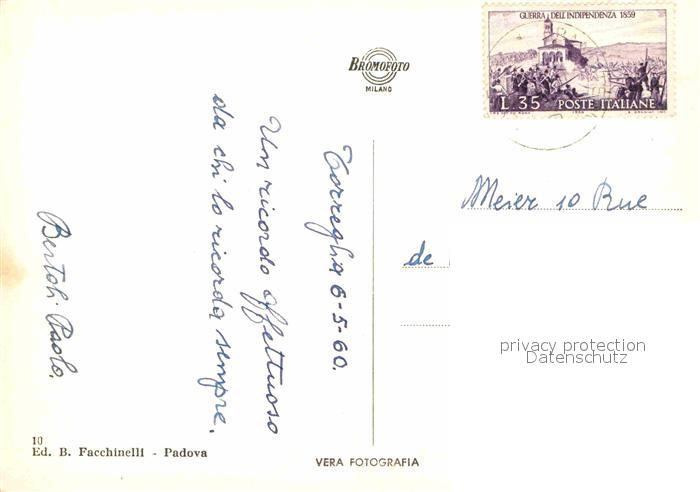 Torreglia 6-5-60.
Un ricordo affettuoso
da chi lo ricorda sempre.
Bertoli Paolo.
BROMOFOTO
MILANO
GUERRA DELL'INDIPENDENZA 1859
L. 35 POSTE ITALIANE
Meier 10 Rue
de
privacy protection
Datenschutz
10
Ed. B. Facchinelli - Padova
VERA FOTOGRAFIA